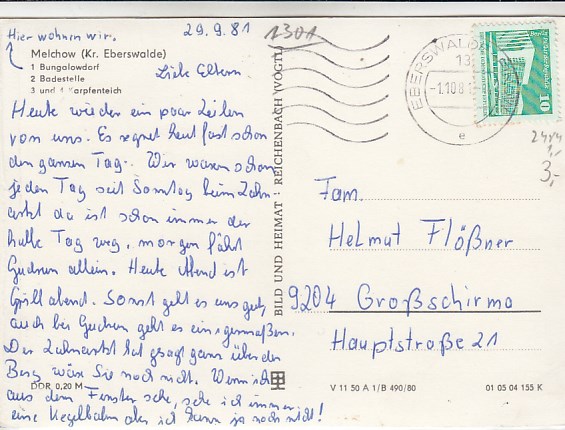 29.9.81
1301
Hier wohnen wir.
Melchow (Kr. Eberswalde)
1 Bungalowdorf
2 Badestelle
3 und 4 Karpfenteich
Liebe Eltern.
Heute wieder ein paar Zeilen
von uns. Es regnet heut fast schon
den ganzen Tag. Wir waren schon
jeden Tag seit Sonntag beim Zahn-
arzt da ist schon immer der
halbe Tag weg, morgen fährt
Gudrun allein. Heute Abend ist
Grillabend. Sonst geht es uns gut,
auch bei Gudrun geht es einigermaßen.
Der Zahnarzt hat gesagt ganz über den
Berg wäre Sie noch nicht. Wenn ich
aus dem Fenster sehe, sehe ich immer
eine Kegelbahn aber ich kann ja noch nicht!
DDR 0,20 M
BILD UND HEIMAT · REICHENBACH (VOGTL)
EBERSWALDE
13
-1.10.81
e
10
3,-
Fam.
Helmut Flößner
9204 Großschirma
Hauptstraße 21
V 11 50 A 1/B 490/80
01 05 04 155 K